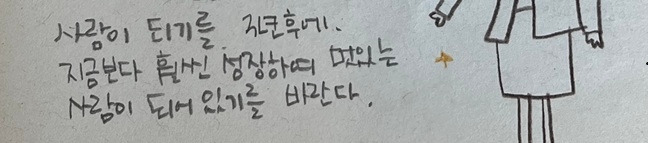 사람이 되기를. 진로후에.
지금보다 훨씬 성장하여 멋있는
사람이 되어 있기를 바란다.